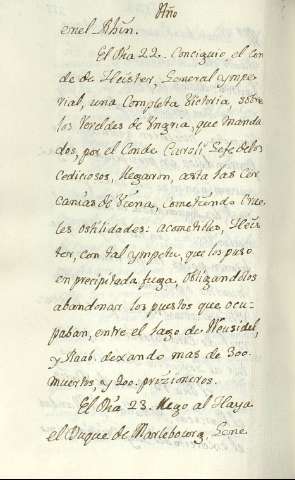 Año
en el Rhin.
El Dia 22. Conciguio, el Con
de de Heister, General ympe-
rial, una Completa Victoria, sobre
los Reveldes de Vngria, que manda
dos, por el Conde Caroli Gefe de los
Cediciosos, llegaron, asta las Cer
canias de Viena, cometiendo Crue
les ostilidades: acometiólos, Heis
ter, con tal ympetu, que los puso
en precipitada fuga, obligandolos
abandonar los puestos que ocu-
paban, entre el lago de Neusidel,
y Raab. dexando mas de 300.
muertos, y 200. prizioneros.
El Dia 23. llego al Haya
el Duque de Marlebourg, Gene